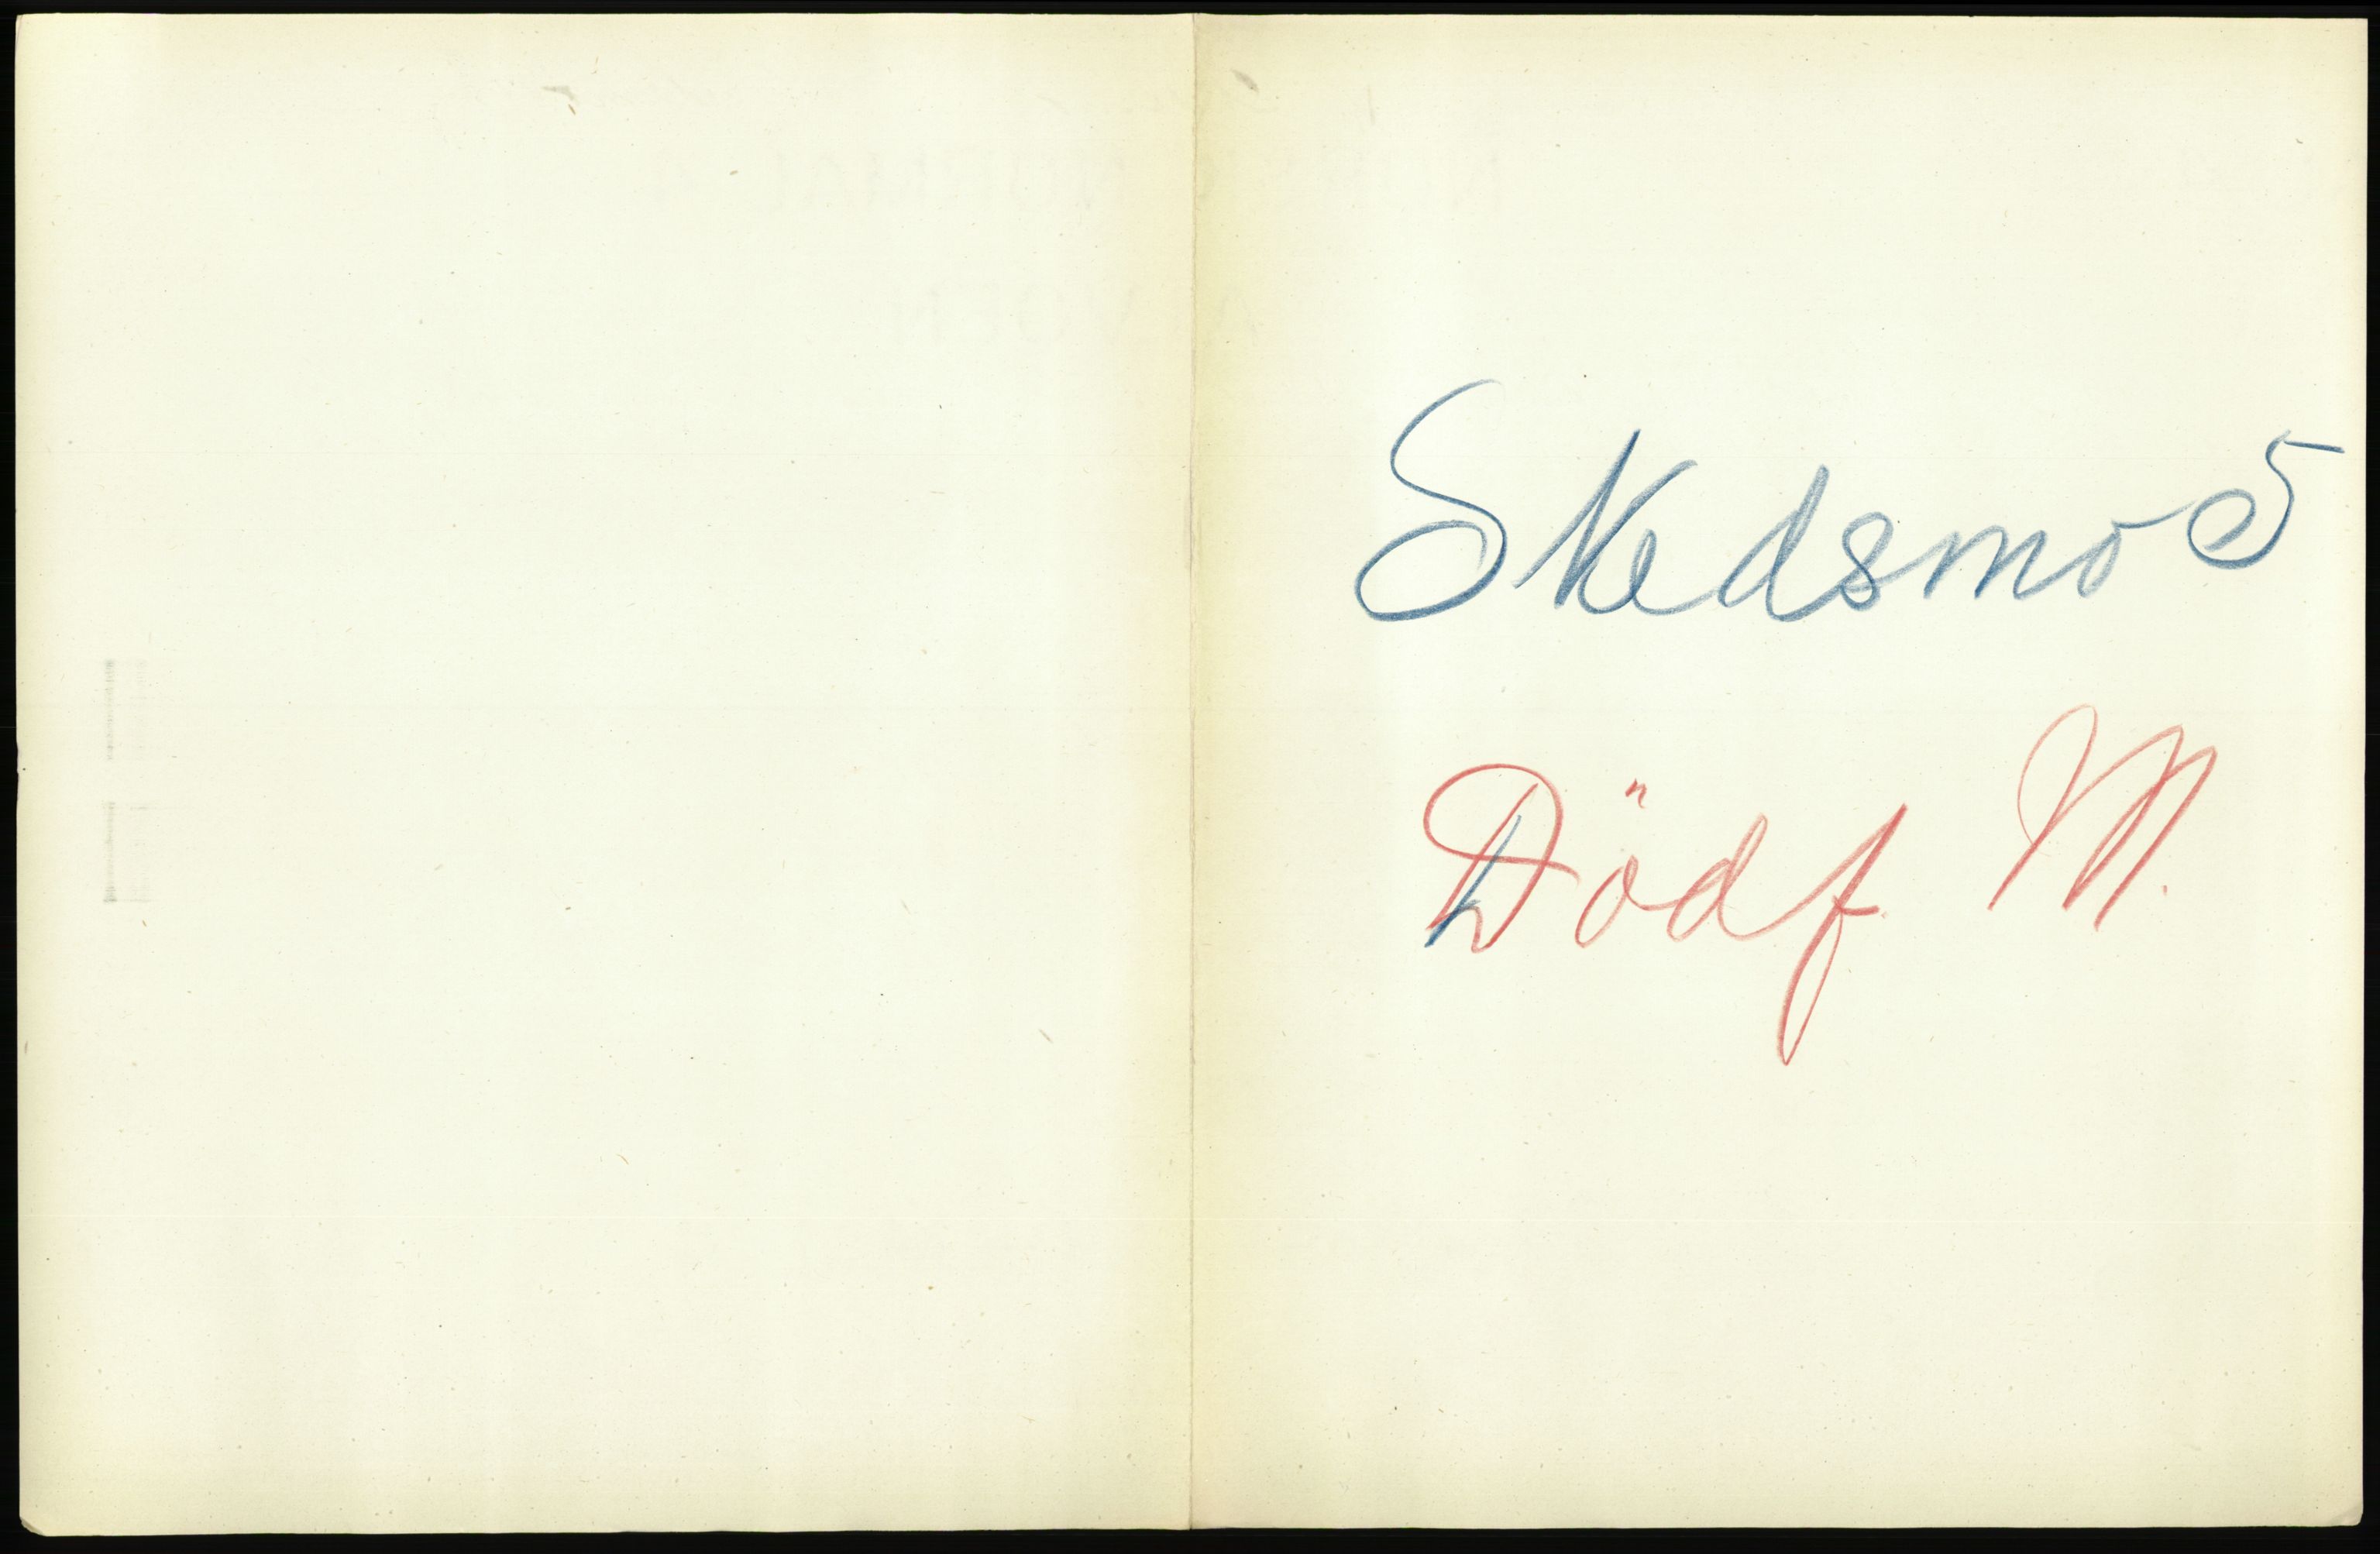 Skedsmo 5
Dödf. M.